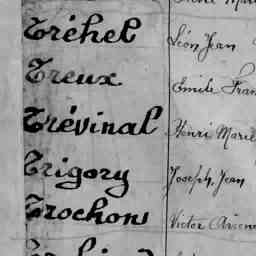 Tréhel Léon Jean
Treux Emile Fran
Trévinal Henri Marie
Trigory Joseph, Jean
Trochon Victor Arsen